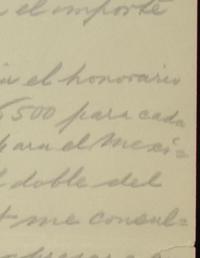 el importe
el honorario
500 para cada
para el Mexi=
doble del
me consul=